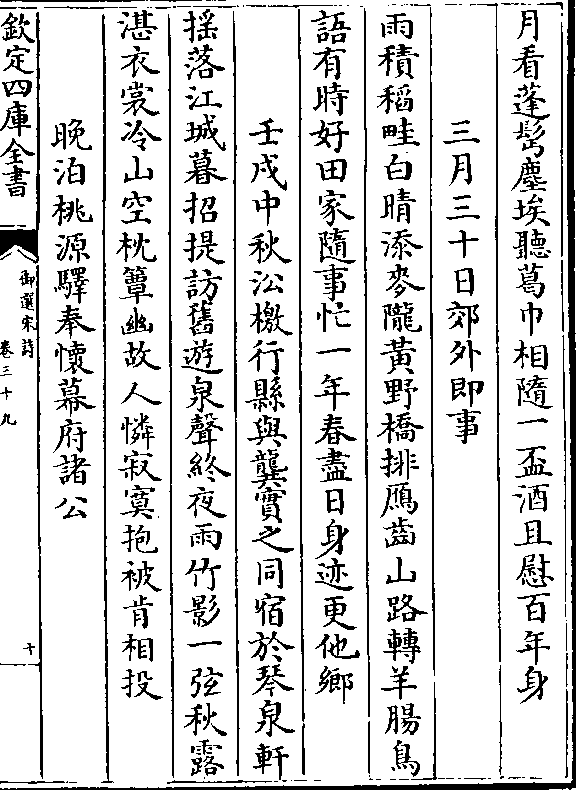 月看蓬髩塵埃聽葛巾相隨一盃酒且慰百年身
三月三十日郊外即事
雨積稻畦白晴添麥隴黃野橋排鴈齒山路轉羊腸鳥
語有時好田家隨事忙一年春盡日身迹更他鄉
壬戍中秋㳂檄行縣與龔實之同宿於琴泉軒
摇落江城暮招提訪舊遊泉聲終夜雨竹影一弦秋露
湛衣裳冷山空枕簟幽故人憐寂寞抱被肯相投
晚泊桃源驛奉懷幕府諸公
欽定四庫全書
御選宋詩
卷三十九
十